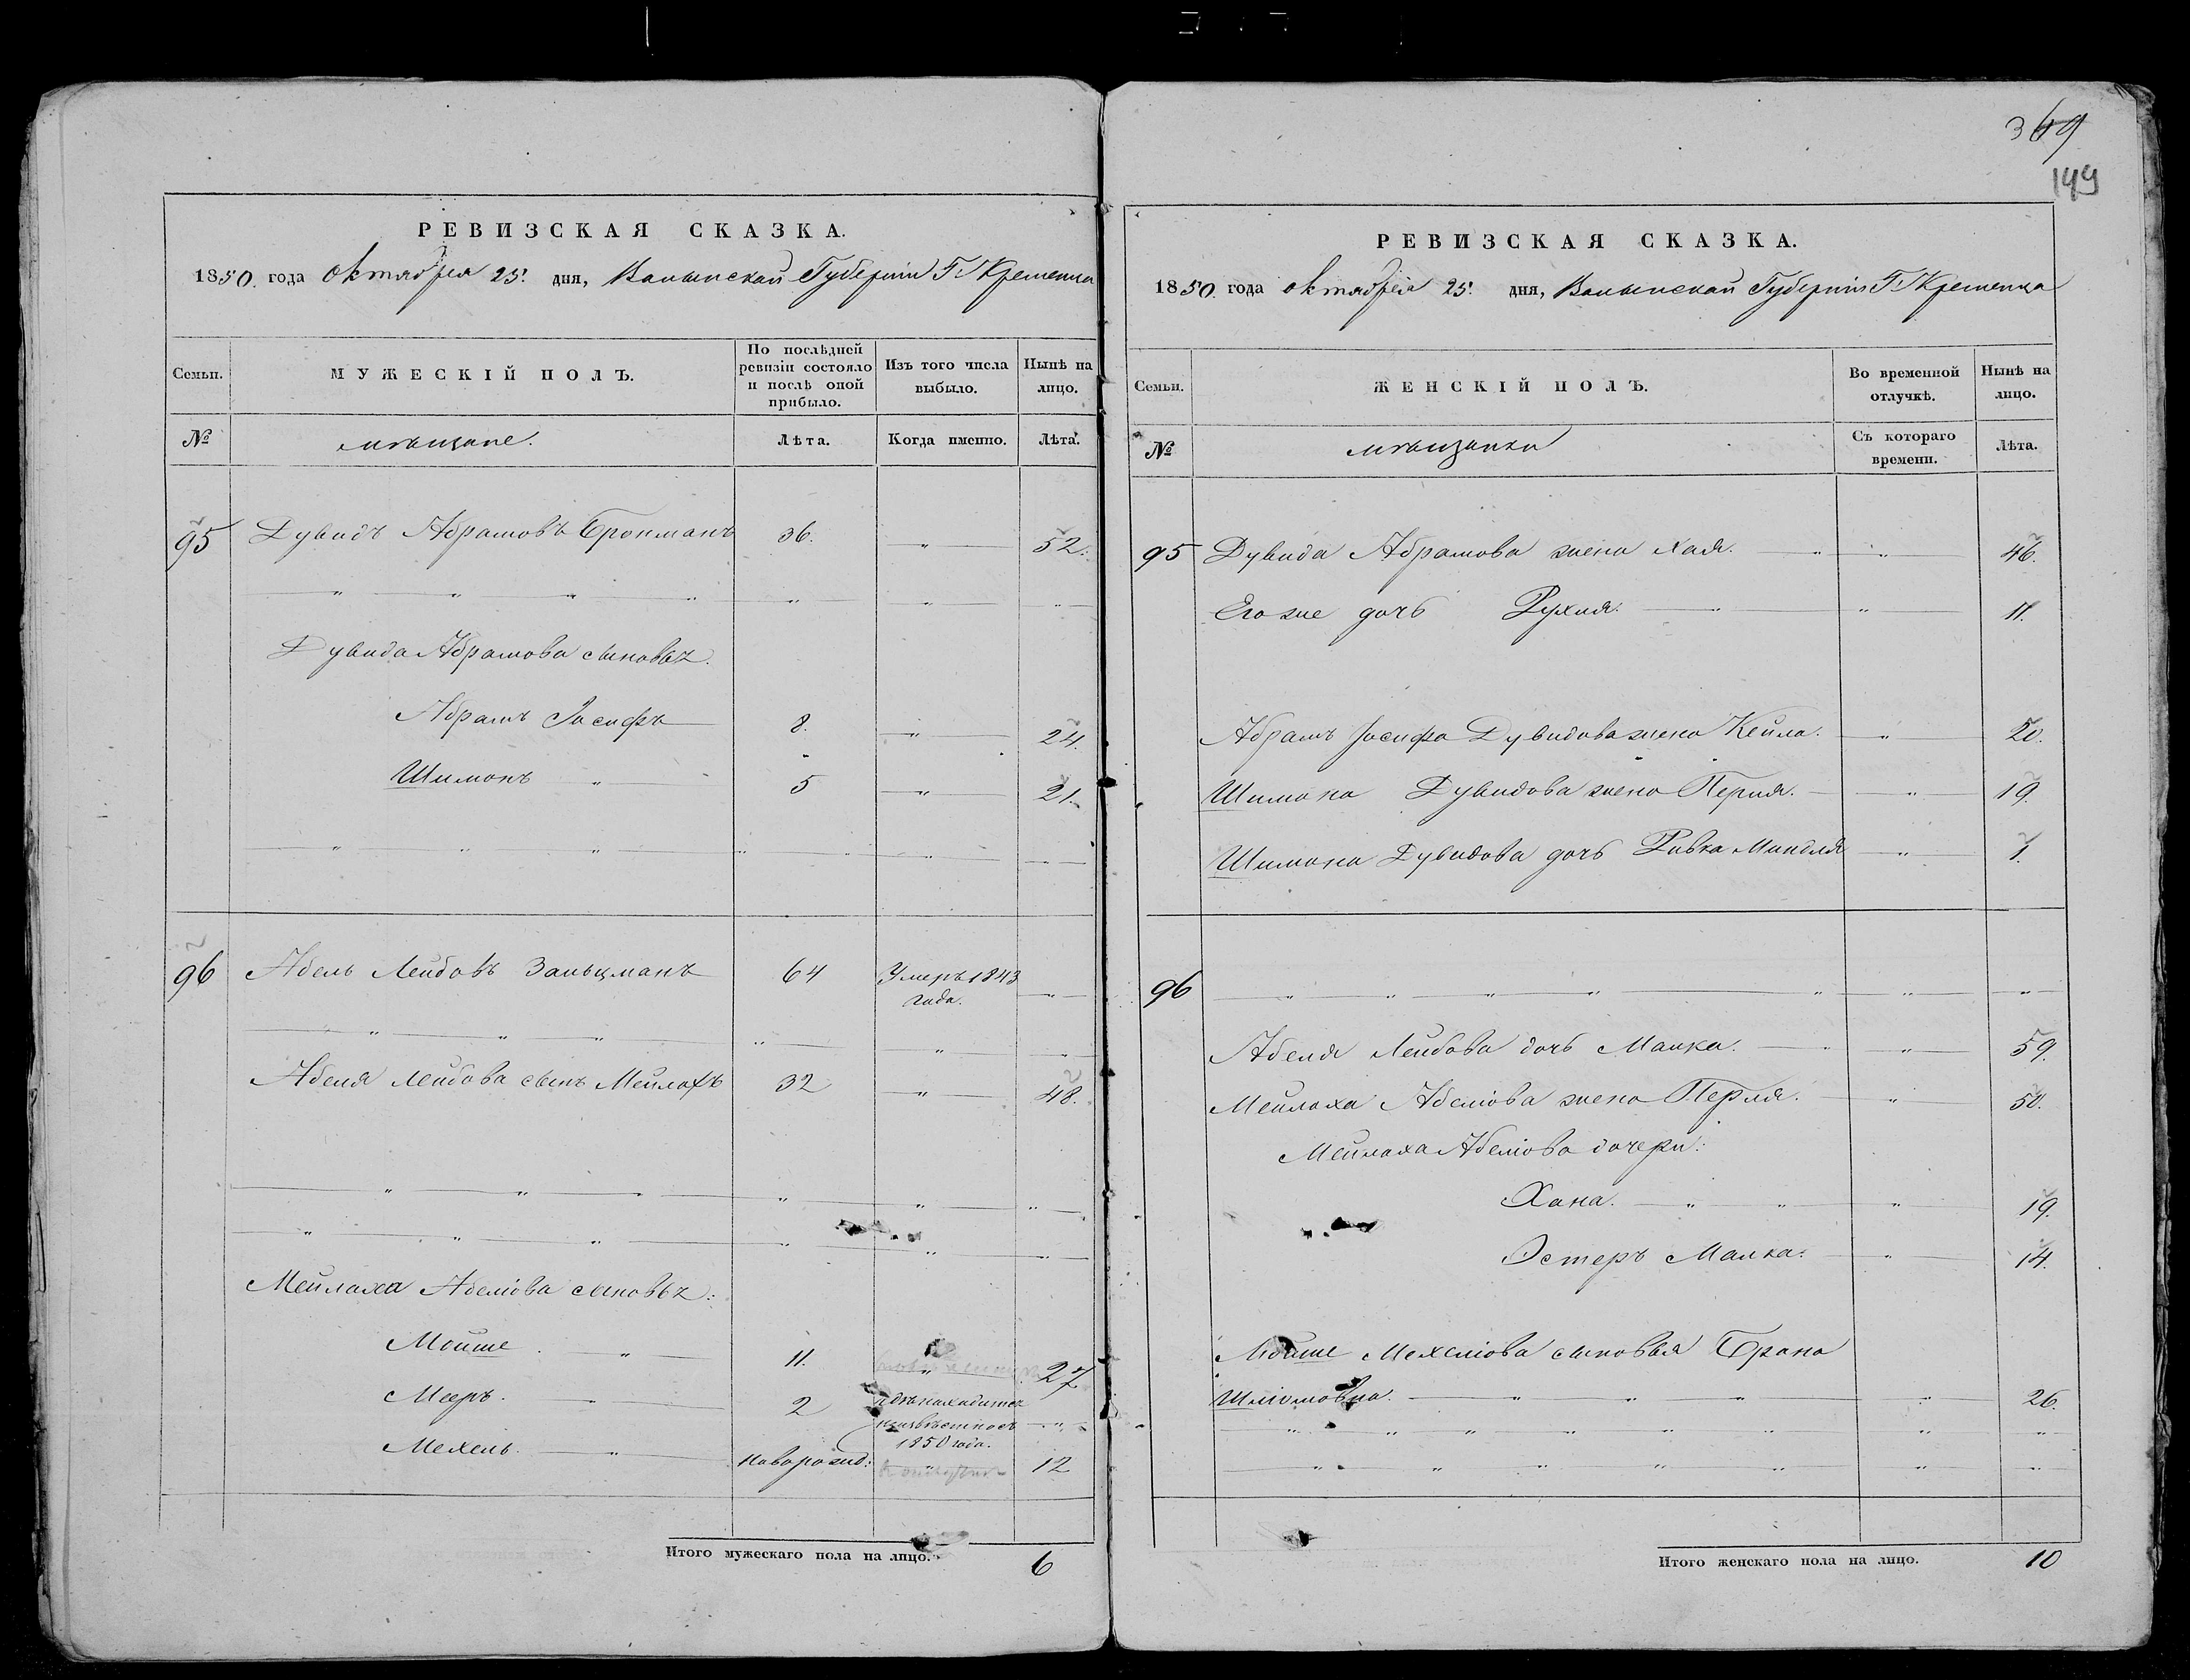 369
149
РЕВИЗСКАЯ СКАЗКА.
1850. года октября 25. дня, Волынской Губерніи Г. Кременца
Семьи. МУЖЕСКІЙ ПОЛЪ. По послѣдней ревизіи состояло и послѣ оной прибыло. Изъ того числа выбыло. Нынѣ на лицо.
№ мѣщане. Лѣта. Когда именно. Лѣта.
95 Дувидъ Абрамовъ Бронманъ 36. " 52.
" " " " " " "
Дувида Абрамова сыновья.
Абрамъ Іосифъ 8. " 24.
Шимонъ " 5 " 21.
" " " " " "
96 Абель Лейбовъ Зальцманъ 64 Умеръ 1843 "
года.
" " " " " "
Абеля Лейбова сынъ Мейлахъ 32 " 48.
" " " " " "
" " " " " "
Мейлаха Абелiова сыновья:
Мойше. " 11. " 27
Мееръ. " 2 гдѣ находится
неизвѣстно съ "
1850 года.
Мехель. " новорожд: " 12
Итого мужескаго пола на лицо. 6
РЕВИЗСКАЯ СКАЗКА.
1850. года октября 25. дня, Волынской Губерніи Г. Кременца
Семьи. ЖЕНСКІЙ ПОЛЪ. Во временной отлучкѣ. Нынѣ на лицо.
№ мѣщанки Съ котораго времени. Лѣта.
95 Дувида Абрамова жена Хая. " " 46.
Его же дочь Рухля. " " 11.
Абрамъ Іосифа Дувидова жена Кейла. " 20.
Шимона Дувидова жена Перля. " 19.
Шимона Дувидова дочь Ривка Миндля " 1.
96 " " " " " " "
Абеля Лейбова дочь Малка. " " 59.
Мейлаха Абелiова жена Перля. " 50.
Мейлаха Абелiова дочери:
Хана. " " " 19.
Эстеръ Малка. " 14.
Мойше Мехелiова сыновья Брана
Шлiомовна. " " " " 26.
" " " " " " " "
" " " " " " "
Итого женскаго пола на лицо. 10